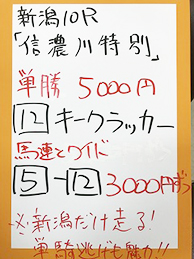 新潟10R
「信濃川特別」
単勝 5000円
12 キークラッカー
馬連とワイド
5-12 3000円ずつ
必ず新潟だけ走る!
単騎逃げも魅力!!